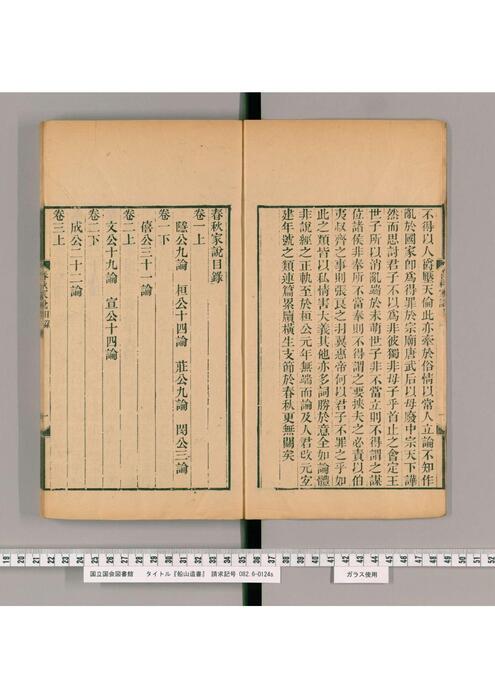 不得以人爵壓天倫此亦牽於俗情以常人立論不知作
亂於國家卽爲得罪於宗廟唐武后以母廢中宗天下譁
然而思討君子不以爲非彼獨非母子乎首止之會定王
世子所以消亂端於未萌世子非不當立則不得謂之謀
位諸侯非奉所不當奉則不得謂之要挾夫之必責以伯
夷叔齊之事則張良之羽翼惠帝何以君子不罪之乎如
此之類皆以私情害大義其他亦多詞勝於意全如論體
非說經之正軌至於桓公元年無端而論及人君改元宜
建年號之類連篇累牘橫生支節於春秋更無關矣
春秋家說目錄
卷一上
隱公九論 桓公十四論 莊公九論 閔公三論
卷一下
僖公三十一論
卷二上
文公十九論 宣公十四論
卷二下
成公二十二論
卷三上
春秋家說目錄
一
19 20 21 22 23 24 25 26 27 28 29 30 31 32 33 34 35 36 37 38 39 40 41 42 43 44 45 46 47 48 49 50 51 52
国立国会図書館 タイトル『船山遺書』 請求記号 082.6-0124s
ガラス使用